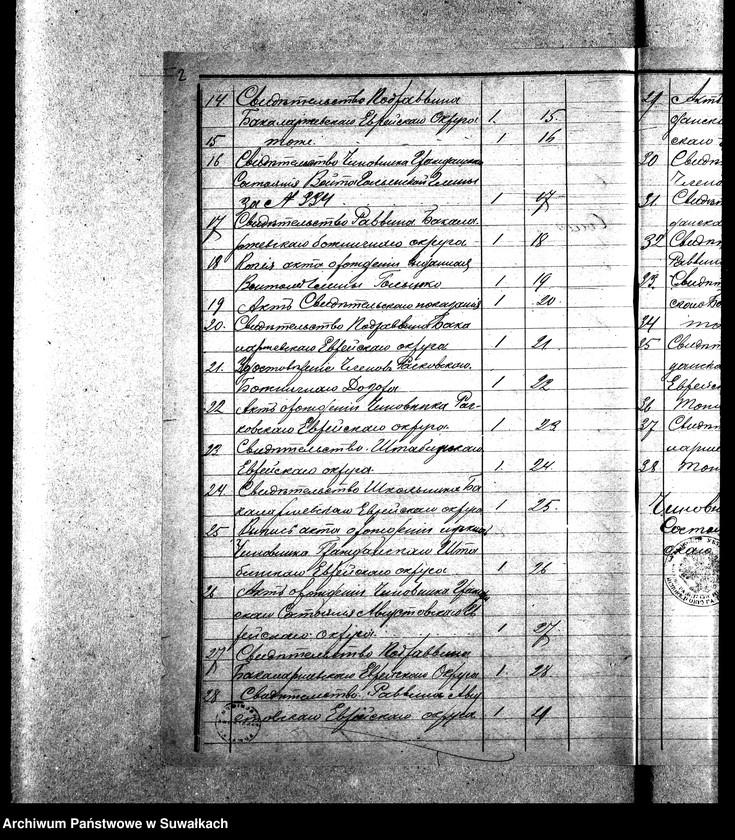 2
14 Свидѣтельство Подраввина
Бакаларжевскаго Еврейскаго Округа 1. 15.
15 тоже. 1 16
16 Свидѣтельство Чиновника Гражданска
Состоянія Войта Гмины
за № 334 1 17
17 Свидѣтельство Раввина Бакала
ржевскаго божничнаго округа 1 18
18 Копія акта о рожденіи выданная
Войтомъ Гмины 1 19
19 Актъ Свидѣтельскаго показанія 1 20
20. Свидѣтельство Подраввина Бака
ларжевскаго Еврейскаго округа 1 21
21. Удостовѣреніе Членовъ Рачковскаго
Божничнаго Дозора 1 22
22 Актъ о рожденіи Чиновника Рач-
ковскаго Еврейскаго округа. 1 23
23 Свидѣтельство Штабинскаго
Еврейскаго округа 1. 24
24 Свидѣтельство Школьника Ба
каларжевскаго Еврейскаго округа 1 25.
25 Выпись акта о рожденіи
Чиновника Гражданскаго Шта
бинскаго Еврейскаго округа 1 26
26 Актъ о рожденіи Чиновника Гражда
скаго Состоянія Августовскаго Ев
рейскаго округа. 1 27
27 Свидѣтельство Подраввина
Бакаларжевскаго Еврейскаго Округа 1. 28.
28 Свидѣтельство Раввина Авгу
стовскаго Еврейскаго округа 1 29
29 Актъ
данска
скаго
30 Свидѣ
31 Свидѣт
данска
32 Свидѣт
Раввина
33. Свидѣт
скаго Ба
34 то
35 Свидѣт
Еврейск
36 Тоже
37 Свидѣт
ларже
38 Тоже
Чиновн
Состоя
Archiwum Państwowe w Suwałkach